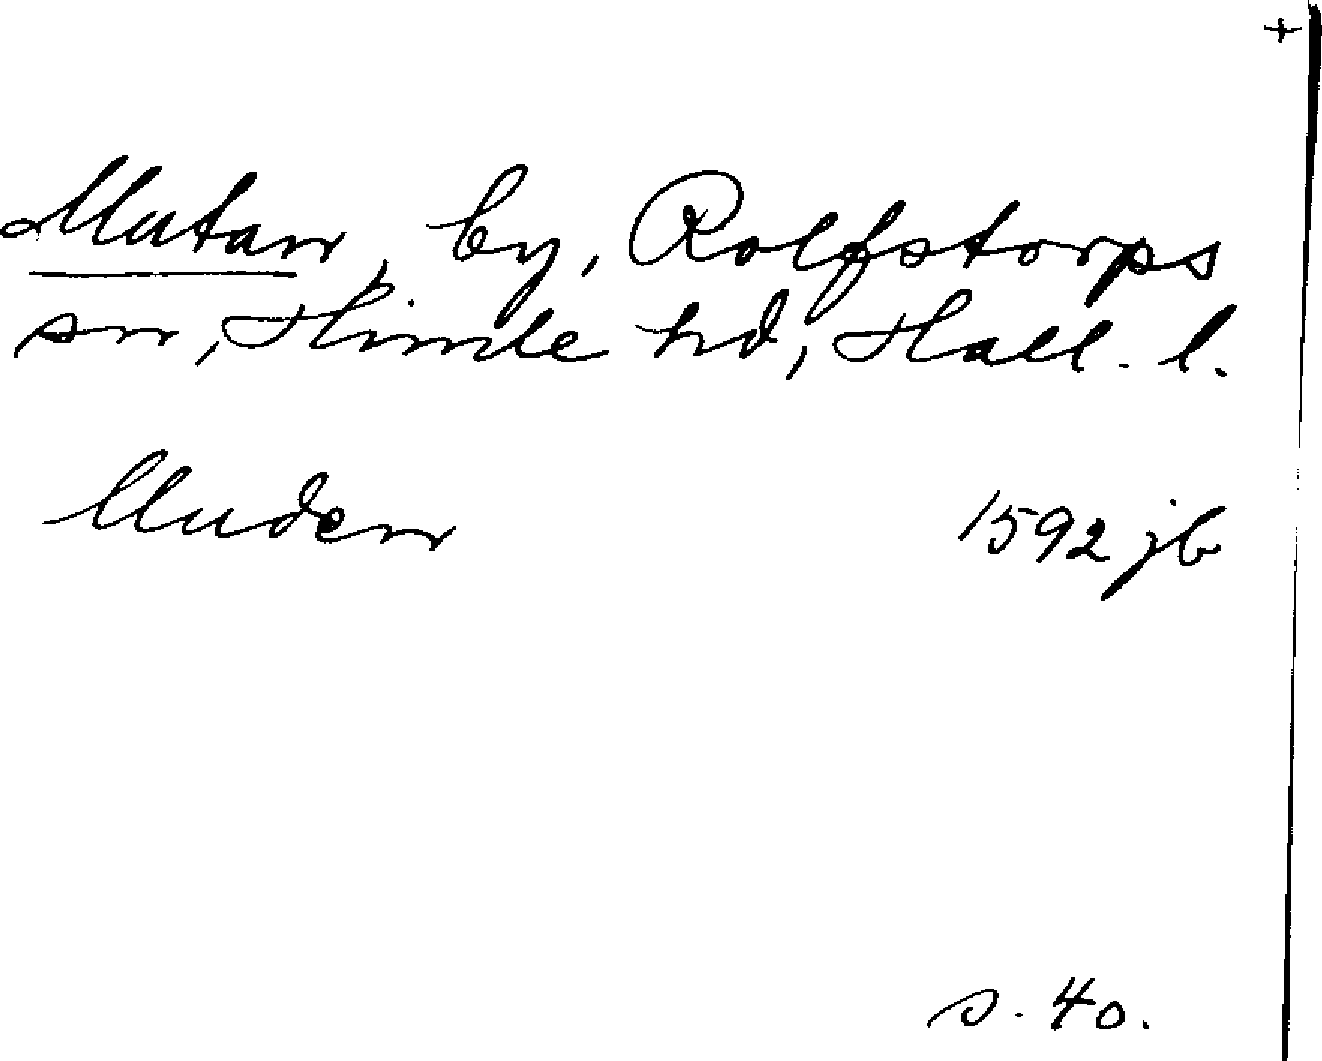 +
Mutan, by, Rolfstorps
sn, Himle hd, Hall. l.
Muden 1592 jb
s. 40.